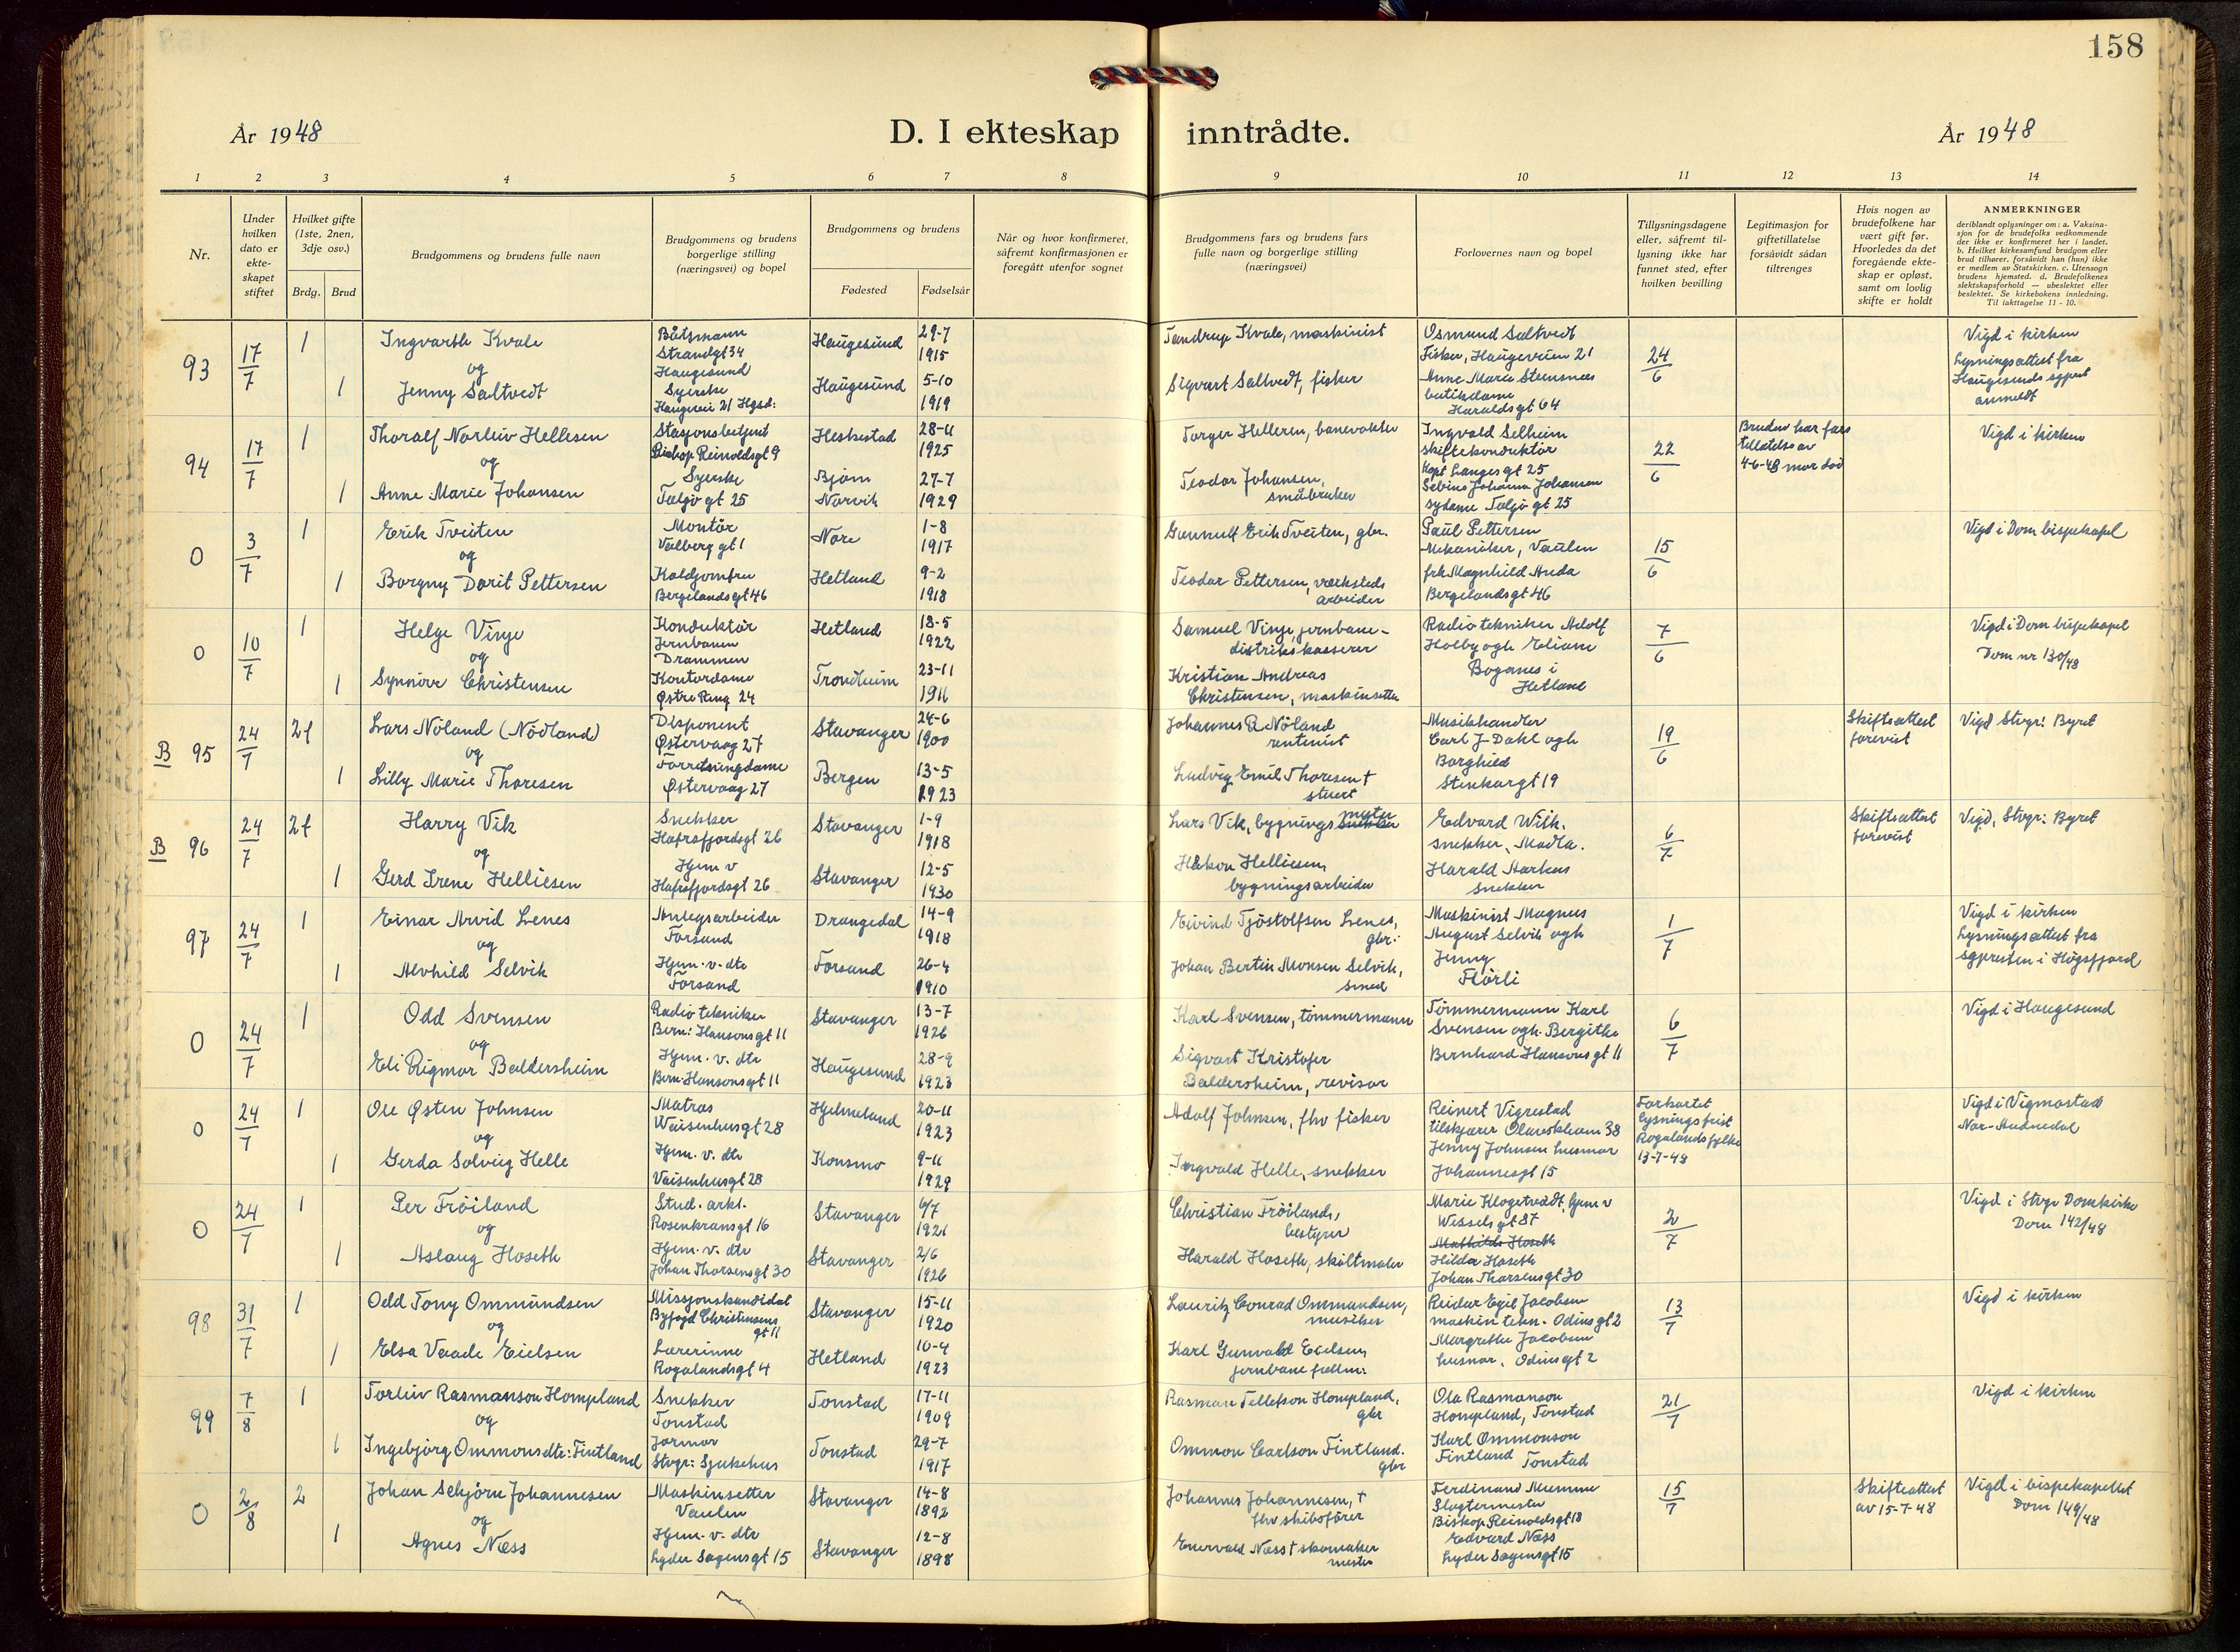 158
År 1948
D. I ekteskap inntrådte.
År 1948
1 2 3 4 5 6 7 8 9 10 11 12 13 14
Nr.
Under hvilken dato er ekte-skapet stiftet
Hvilket gifte (1ste, 2nen, 3dje osv.)
Brdg. Brud
Brudgommens og brudens fulle navn
Brudgommens og brudens borgerlige stilling (næringsvei) og bopel
Brudgommens og brudens
Fødested
Fødselsår
Når og hvor konfirmeret, såfremt konfirmasjonen er foregått utenfor sognet
Brudgommens fars og brudens fars fulle navn og borgerlige stilling (næringsvei)
Forlovernes navn og bopel
Tillysningsdagene eller, såfremt til-lysning ikke har funnet sted, efter hvilken bevilling
Legitimasjon for giftetillatelse forsåvidt sådan tiltrenges
Hvis nogen av brudefolkene har vært gift før. Hvorledes da det foregående ekte-skap er opløst, samt om lovlig skifte er holdt
ANMERKNINGER
deriblandt oplysninger om: a. Vaksina-
sjon for de brudefolks vedkommende
der ikke er konfirmeret her i landet.
b. Hvilket kirkesamfund brudgom eller
brud tilhører, forsåvidt han (hun) ikke
er medlem av Statskirken. c. Utensogn
brudens hjemsted. d. Brudefolkenes
slektskapsforhold — ubeslektet eller
beslektet. Se kirkebokens innledning.
Til iakttagelse 11 - 10.
93
17/7
1
Ingvarth Kvale
og
1
Jenny Saltvedt
Båtsmann
Strandgt 34
Haugesund
Syerske
Haugevei 21 Hgsd:
Haugesund
29-7
1915
Haugesund
5-10
1919
Tandrup Kvale, maskinist
Sigvart Saltvedt, fisker
Osmund Saltvedt
Fisker, Haugeveien 21
Anne Marie Steensnes
butikdame
Haraldsgt 64
24/6
Vigd i kirken
Lysningsattest fra
Haugesunds sgprst
anmeldt
94
17/7
1
Thoralf Norleiv Hellesen
og
1
Anne Marie Johansen
Stasjonsbetjent
Biskop Reinoldsgt 9
Syerske
Taljø gt 25
Heskestad
28-11
1925
Bjørn
Narvik
27-7
1929
Torger Helleren, banevokter
Teodor Johansen,
småbruker
Ingvald Selheim
skiftekonduktør
Kapt Langes gt 25
Sabine Johanna Johansen
sydame Taljø gt 25
22/6
Bruden har fars
tillatelse av
4-6-48 mor død
Vigd i kirken
0
3/7
1
Erik Tveiten
og
1
Borgny Dorit Pettersen
Montør
Valberg gt 1
Koldjomfru
Bergelandsgt 46
Nore
1-8
1917
Hetland
9-2
1918
Gunnulf Erik Tveiten, gbr.
Teodor Pettersen, verksteds
arbeider
Paul Pettersen
Mekaniker, Vaulen
frk Magnhild Anda
Bergelandsgt 46
15/6
Vigd i Dom bispekapel
0
10/7
1
Helge Vinje
og
1
Synnøve Christensen
Konduktør
Jernbanen
Drammen
Kontordame
Østre Ring 24
Hetland
18-5
1922
Trondheim
23-11
1911
Samuel Vinje, jernbane-
distrikskasserer
Kristian Andreas
Christensen, maskinsetter
Radio tekniker Adolf
Holby ogh Eliane
Boganes i
Hetland
7/6
Vigd i Dom bispekapel
Dom nr 130/48
B 95
24/7
2f
Lars Nöland (Nödland)
og
1
Lilly Marie Thoresen
Disponent
Østervaag 27
Forretningdame
Østervaag 27
Stavanger
24-6
1900
Bergen
13-5
1923
Johannes R Nöland
rentenist
Ludvig Emil Thoresen †
stuert
Musikhandler
Carl J. Dahl ogh
Borghild
Stenkargt 19
19/6
Skifteattest
forevist
Vigd Stvgr: Byret
B 96
24/7
2f
Harry Vik
og
1
Gerd Irene Helliesen
Snekker
Hafrsfjordsgt 26
Hjem v
Hafrsfjordsgt 26
Stavanger
1-9
1918
Stavanger
12-5
1930
Lars Vik, bygnings mester
Håkon Helliesen
bygningsarbeider
Edvard Wiik.
snekker, Madla.
Harald Aarhus
snekker
6/7
Skifteattest
forevist
Vigd, Stvgr: Byret
97
24/7
1
Einar Arvid Lenes
og
1
Alvhild Selvik
Anlegsarbeider
Forsand
Hjem.v.dtr
Forsand
Drangedal
14-9
1918
Forsand
26-4
1910
Eivind Tjöstolfsen Lenes,
gbr:
Johan Bertin Monsen Selvik,
smed
Maskinist Magnus
August Selvik ogh
Jenny
Flörli
1/7
Vigd i kirken
Lysningsattest fra
sgpresten i Høgsfjord
0
24/7
1
Odd Svensen
og
Eli Rigmor Baldersheim
Radio tekniker
Bern: Hansonsgt 11
Hjem. v. dtr
Bern. Hansonsgt 11
Stavanger
13-7
1926
Haugesund
28-9
1923
Karl Svensen, tömmermann
Sigvart Kristofer
Baldersheim, revisor
Tömmermann Karl
Svensen ogh. Bergithe
Bernhard Hansons gt 11
6/7
Vigd i Haugesund
0
24/7
1
Ole Østen Johnsen
og
1
Gerda Solveig Helle
Matros
Waisenhusgt 28
Hjem. v. dtr
Vaisenhusgt 28
Hjelmeland
20-11
1923
Konsmo
9-11
1929
Adolf Johnsen, fhv fisker
Ingvald Helle, snekker
Reinert Vigrestad
tilskjærer Olavskleven 38
Jenny Johnsen husmor
Johannesgt 15
Forkortet
lysningsfrist
Rogalands fylke
13-7-48
Vigd i Vigmostad
Nor-Audnedal
0
24/7
1
Per Fröiland
og
1
Aslaug Hoseth
Stud. arkt.
Rosenkransgt 16
Hjem. v. dtr
Johan Thorsensgt 30
Stavanger
6/7
1921
Stavanger
2/6
1926
Christian Fröiland,
bestyrer
Harald Hoseth, skiltmaler
Marie Klogetvedt, hjem v
Wessels gt 87
Mathilde Hoseth
Hilda Hoseth
Johan Thorsensgt 30
2/7
Vigd i Stvgr Domkirke
Dom 142/48
98
31/7
1
Odd Tony Ommundsen
og
1
Elsa Vaade Eielsen
Missjonskandidat
Byfogd Christensens
gt 11
Lærerinne
Rogalandsgt 4
Stavanger
15-11
1920
Hetland
10-4
1923
Lauritz Conrad Ommundsen,
musiker
Karl Gunvald Eielsen
jernbane fullm.
Reidar Egil Jacobsen
maskin tekn. Odins gt 2
Margrethe Jacobsen
husmor. Odins gt 2
13/7
Vigd i kirken
99
7/8
1
Torleiv Rasmanson Hompland
og
1
Ingebjörg Ommonsdtr: Fintland
Snekker
Tonstad
Jormor
Stvgr: Sjukehus
Tonstad
17-11
1909
Tonstad
29-7
1917
Rasman Tellefson Hompland,
gbr
Ommon Carlson Fintland.
gbr
Ola Rasmanson
Hompland, Tonstad
Karl Ommonson
Fintland Tonstad
21/7
Vigd i kirken
0
2/8
2
Johan Sebjörn Johannesen
og
1
Agnes Næss
Maskinsetter
Vaulen
Hjem. v. dtr
Lyder Sagensgt 15
Stavanger
14-8
1892
Stavanger
12-8
1898
Johannes Johannesen, †
fhv skibsförer
Enervald Næss † skomaker
mester
Ferdinand Mumme
Slagtermester
Biskop Reinoldsgt 18
Edvard Næss
Lyder Sagensgt 15
15/7
Skifteattest
av 15-7-48
Vigd i bispekapellet
Dom 149/48